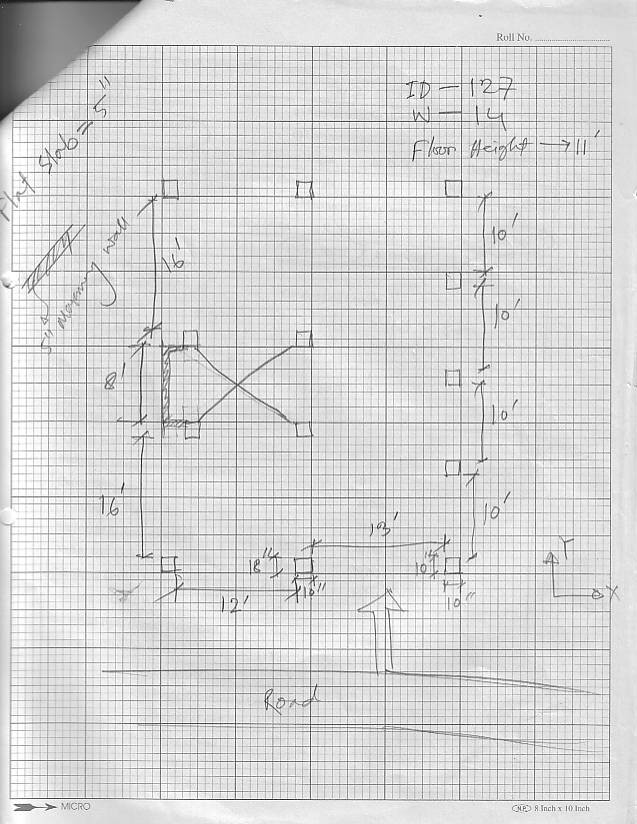 Roll No.
ID - 127
W - 14
Floor Height → 11'
Flat Slab = 5"
5" Masonry wall
16'
8'
16'
10'
10'
10'
10'
13'
18"
10"
10"
10"
12'
Y
X
Road
MICRO
NP 8 Inch x 10 Inch